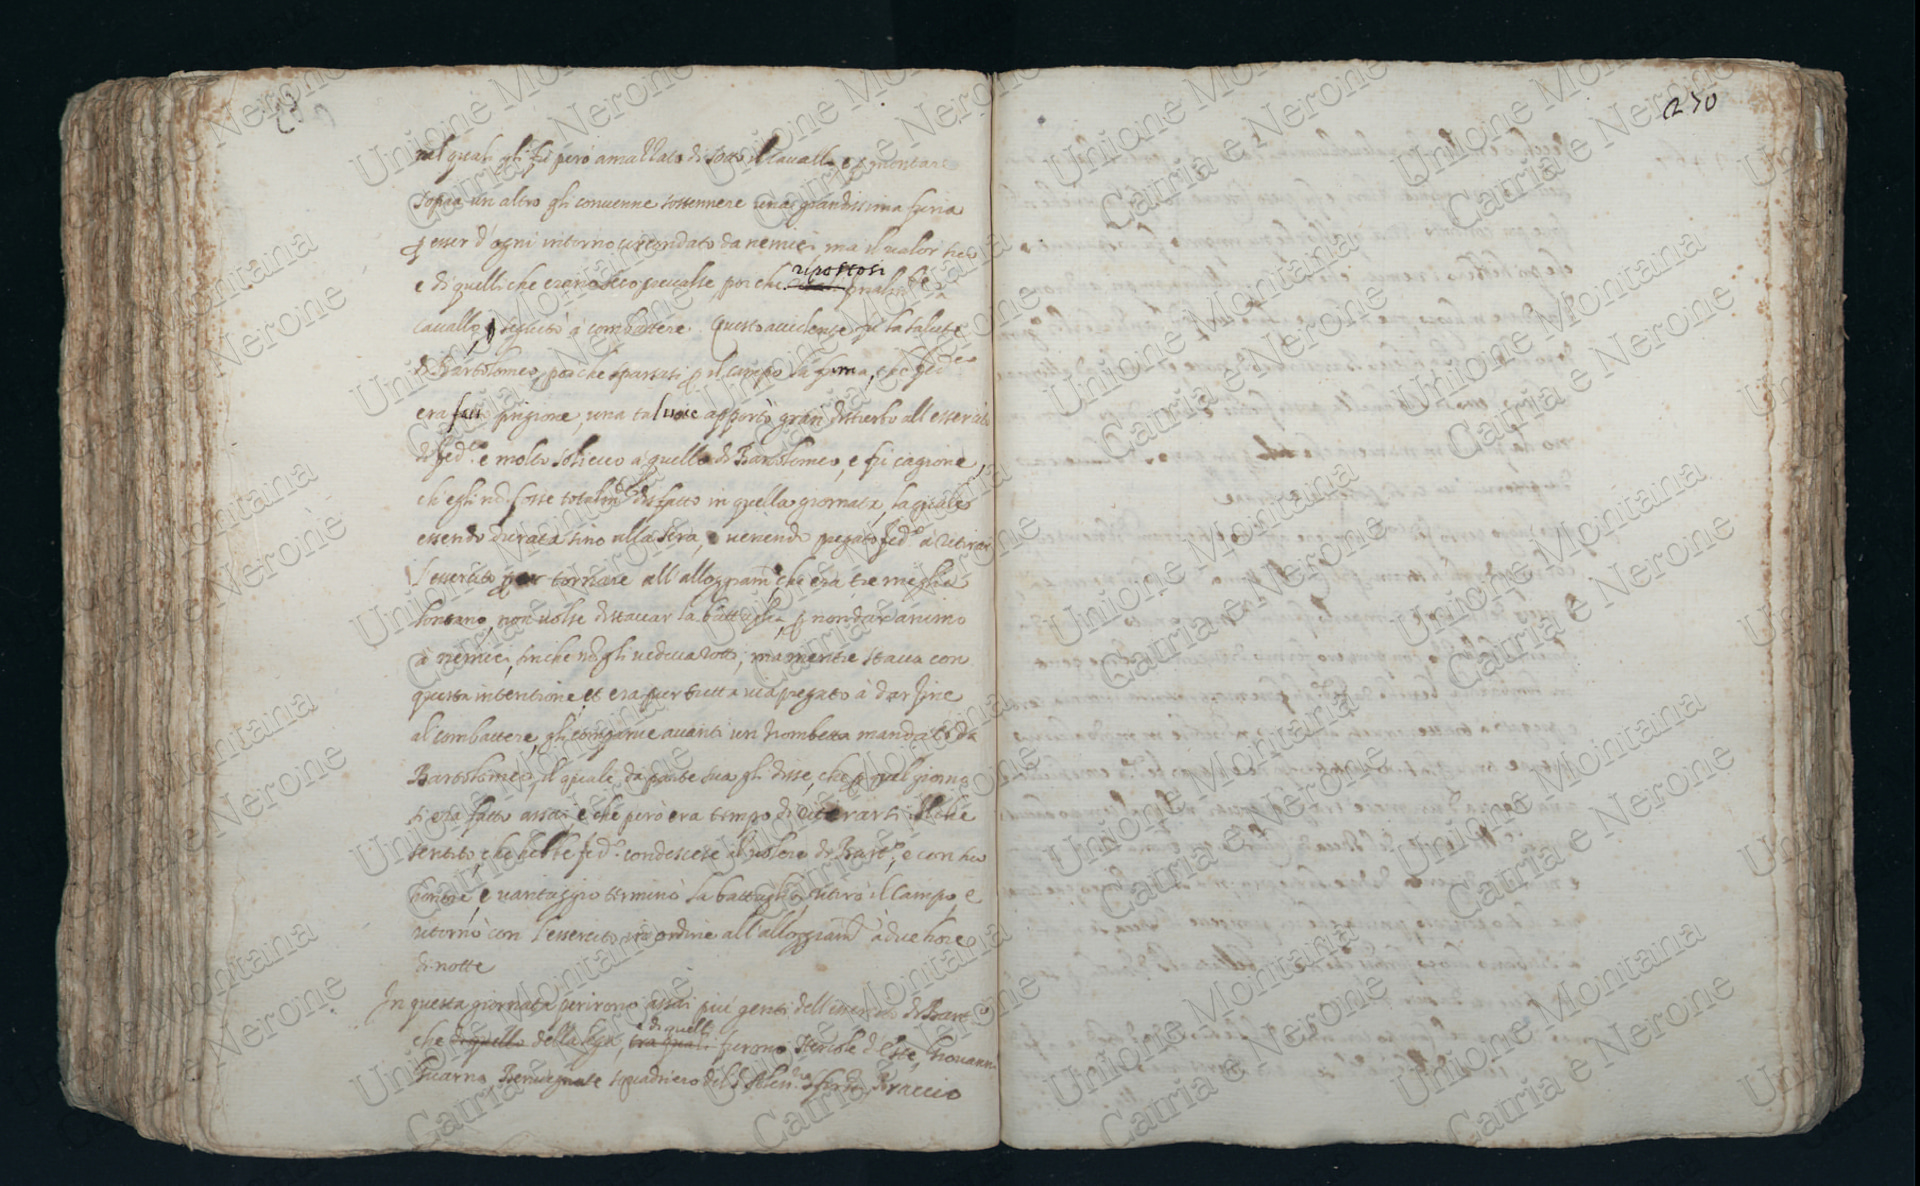 nel quale gli fu però amazzato di sotto il cavallo e montare
sopra un altro gli convenne sostennere una grandissima furia
ꝑ esser d'ogni intorno circondato da nemici ma il valor suo
e di quelli che erano seco prevalse, poi che ripostosi
cavallo, seguitò à combattere. Questo accidente fu la salute
di Bartolomeo, poiche sparsasi ꝑ il campo la fama, che Fed.co
era fatto prigione, una tal voce apportò gran disturbo all'essercito
di Fed.co e molto sollievo à quello di Bartolomeo, e fu cagione,
ch'egli nō fosse totalm.te disfatto in quella giornata, la quale
essendo durata sino alla sera, e venendo pregato Fed.co à ritirar
l'essercito per tornare all'alloggiam.to che era tre meglie
lontano, non volse distaccar la battaglia, ꝑ non dar animo
à nemici, finche nō gli vedeva rotti; ma mentre stava con
questa intentione, et era pur tutta via pregato à dar fine
al combattere, gli comparve avanti un trombetta mandato da
Bartolomeo, il quale da parte sua gli disse, che ꝑ quel giorno
si era fatto assai, e che però era tempo di ritirarsi. Il che
sentito che hebbe Fed.co condescese al volere di Bart.o, e con suo
honore, e vantaggio terminò la battaglia, ritirò il Campo, e
ritornò con l'essercito in ordine all'alloggiam.to à due hore
di notte
In questa giornata perirono assai più genti dell'essercito di Bart.o
che di quello della lega, tra quali e di quelli furono Hercole d'Este, Giovanni
squadriero del S. Aless.ro Sforza, Braccio
250
Unione Montana
Catria e Nerone